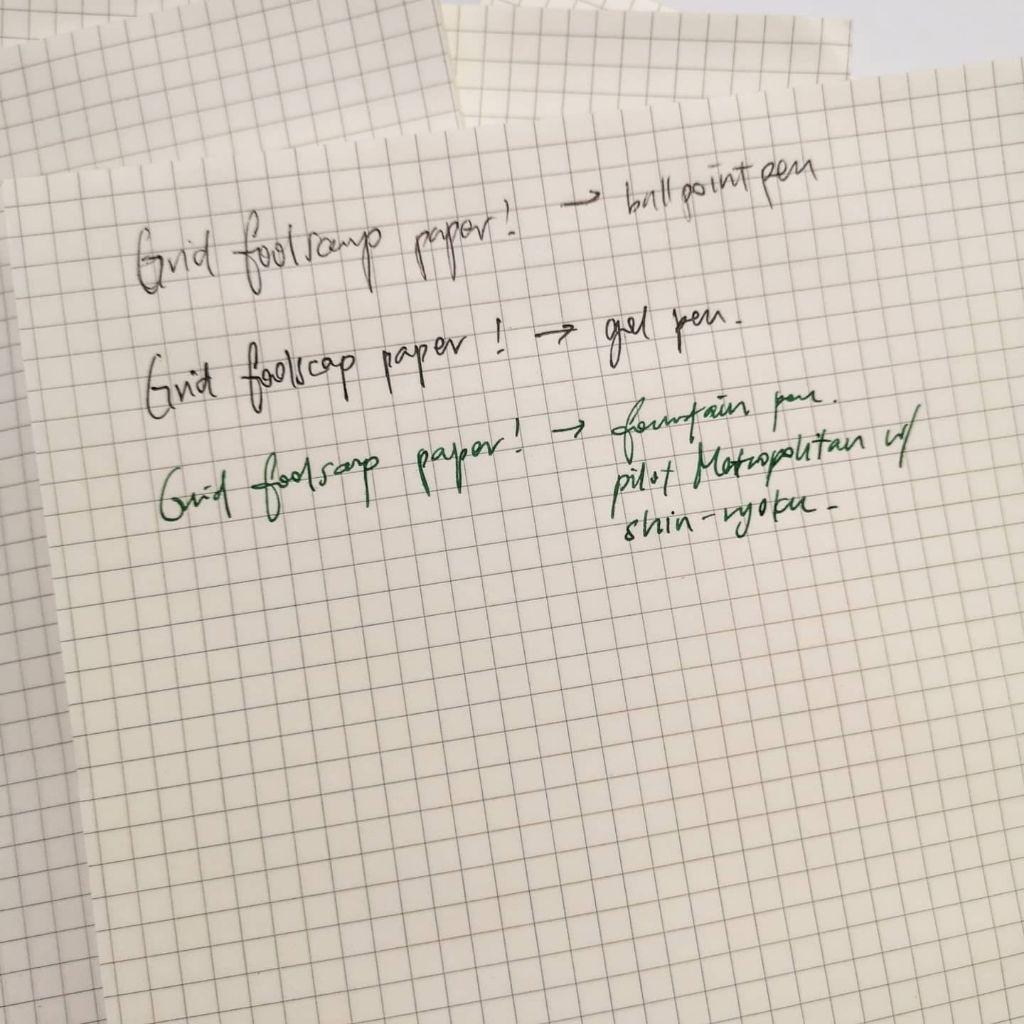 Grid foolscamp paper! → ballpoint pen
Grid foolscap paper! → gel pen.
Grid foolscamp paper! → fountain pen.
pilot Metropolitan w/
shin-ryoku.